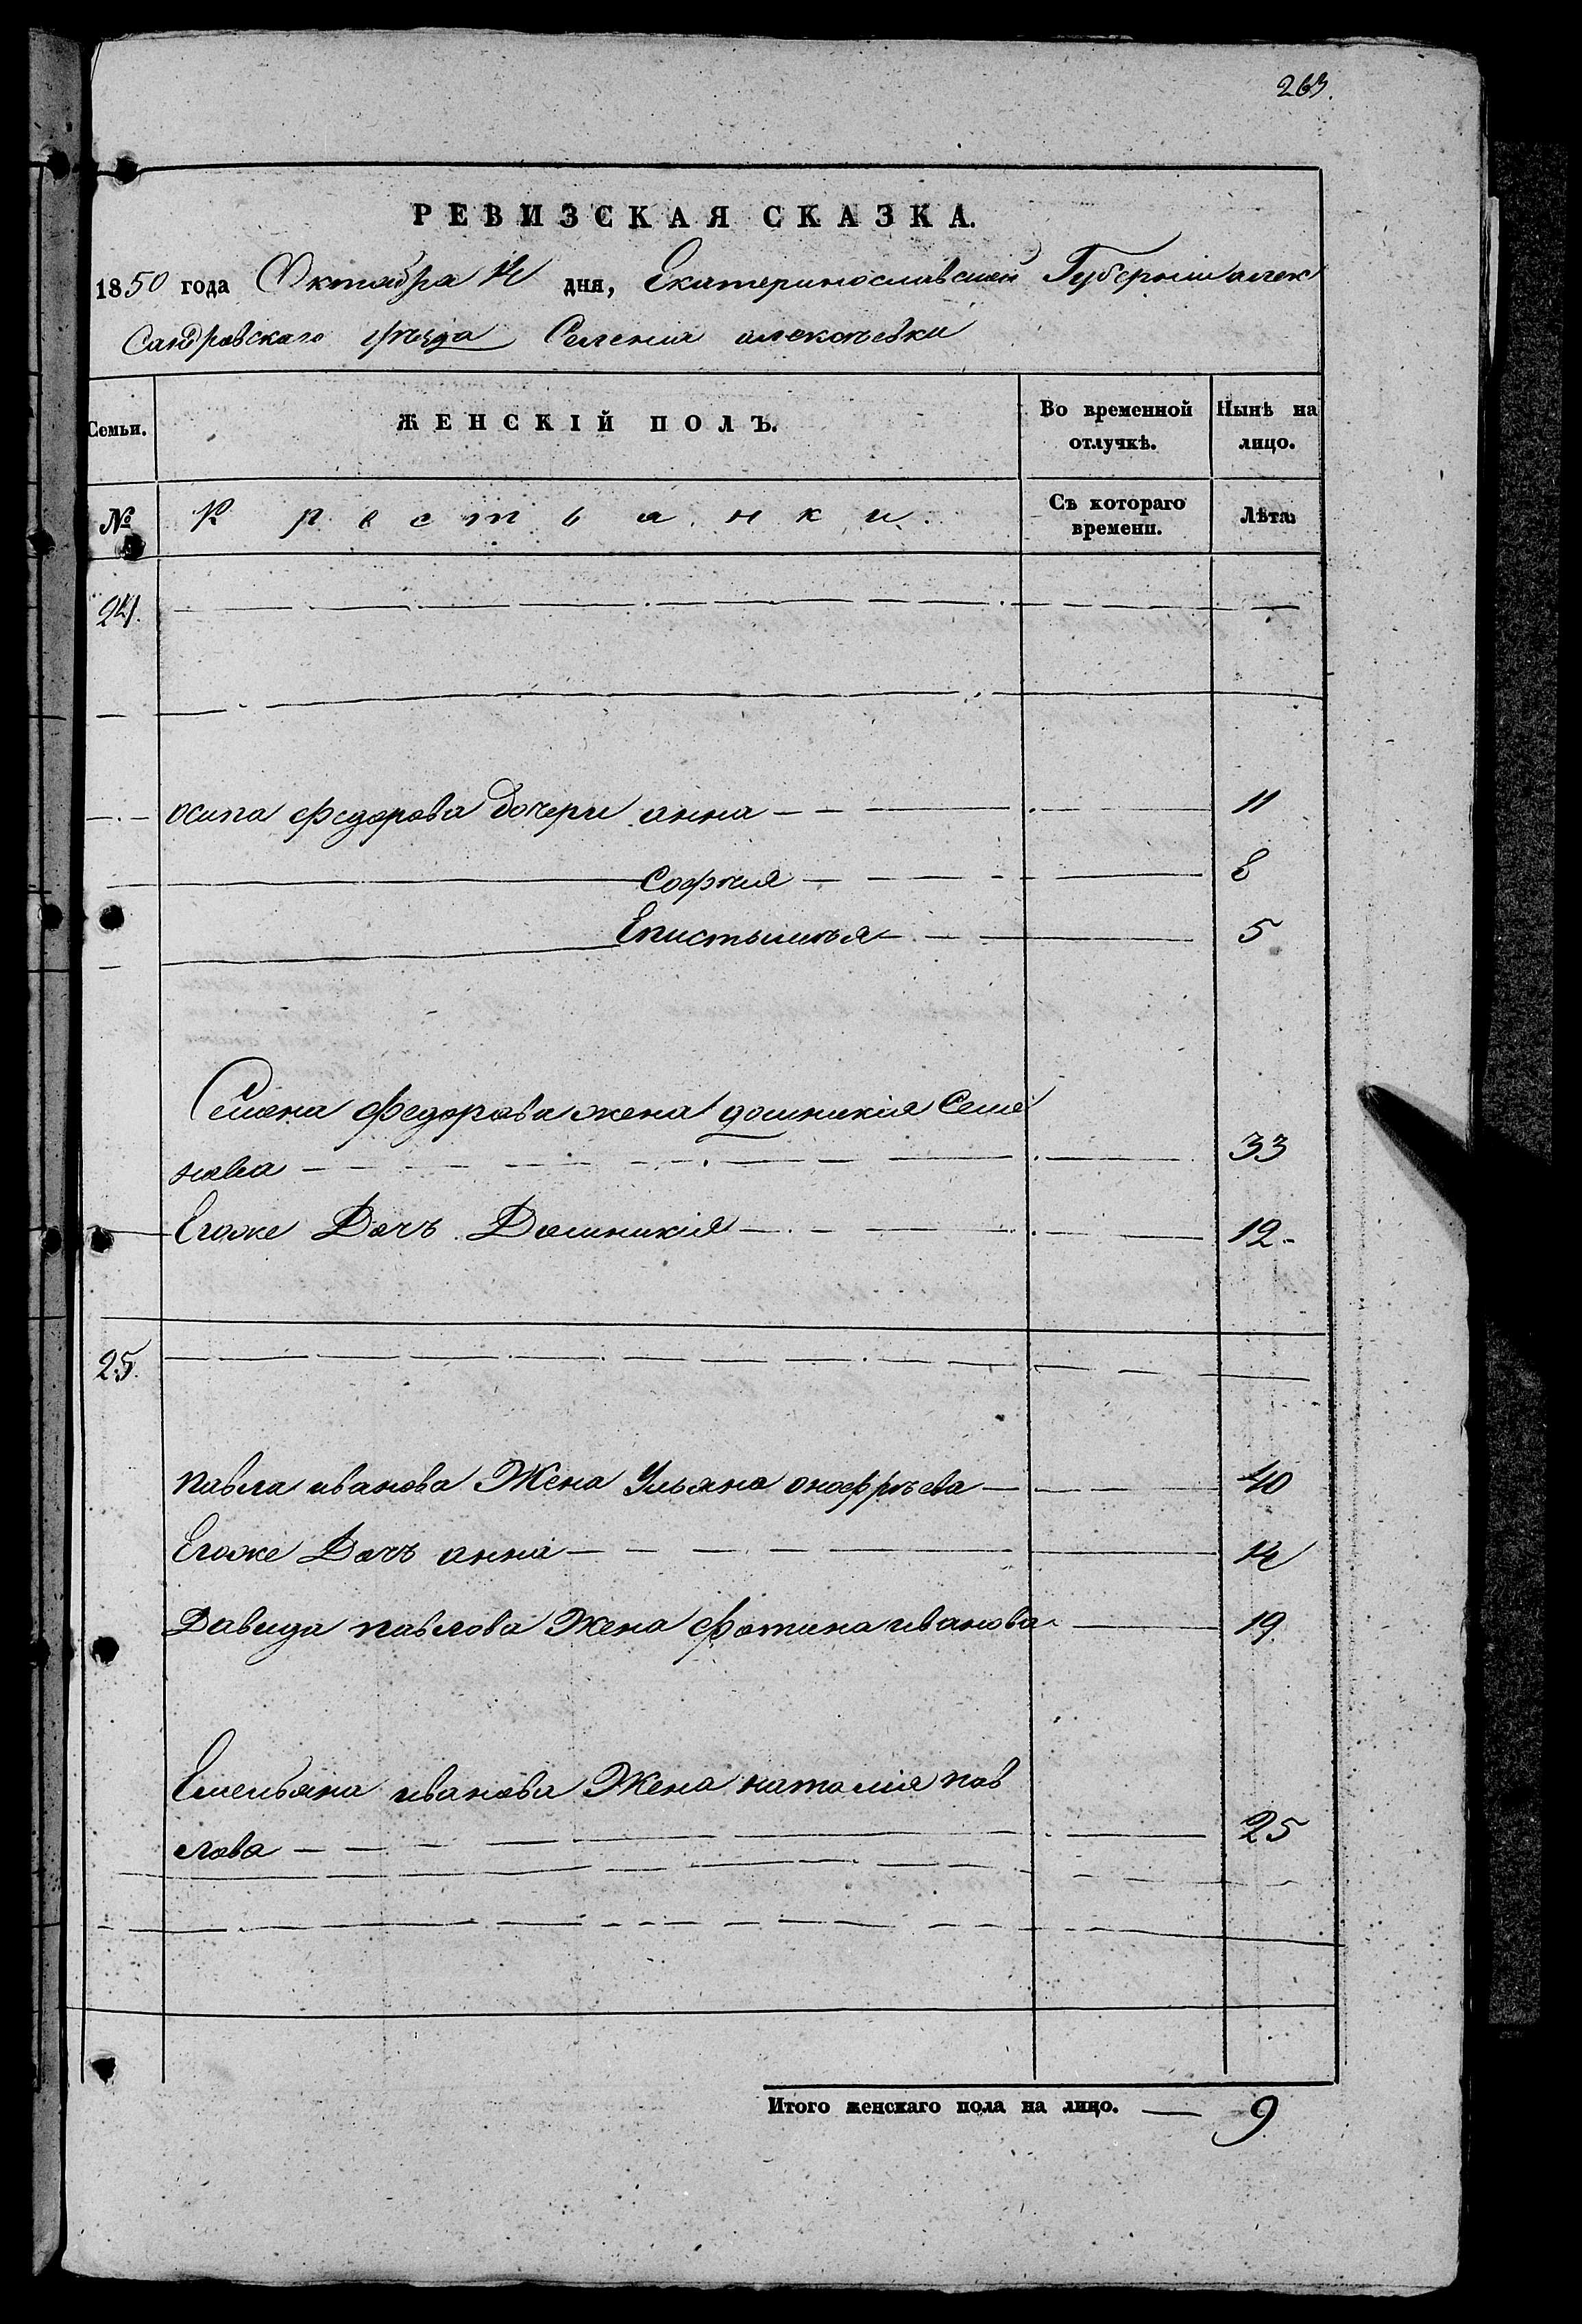 263.
РЕВИЗСКАЯ СКАЗКА.
1850 года Октября 14 дня, Екатеринославской Губернiи алек
сандровскаго уѣзда Селенiя алексѣевки
Семьи. ЖЕНСКIЙ ПОЛЪ. Во временной отлучкѣ. Нынѣ на лицо.
№ Крестьанки. Съ котораго времени. Лѣта.
24.
осипа федорова дочери анна 11
софия 8
Епистимья 5
Семена федорова жена домникiя Семе
нова 33
Егоже Дочъ Домникiя 12
25.
павла иванова Жена Ульяна онофрѣева 40
Егоже Дочъ анна 14
Давида павлова Жена фотина иванова 19
Емельяна иванова Жена наталiя пав
лова 25
Итого женскаго пола на лицо. 9